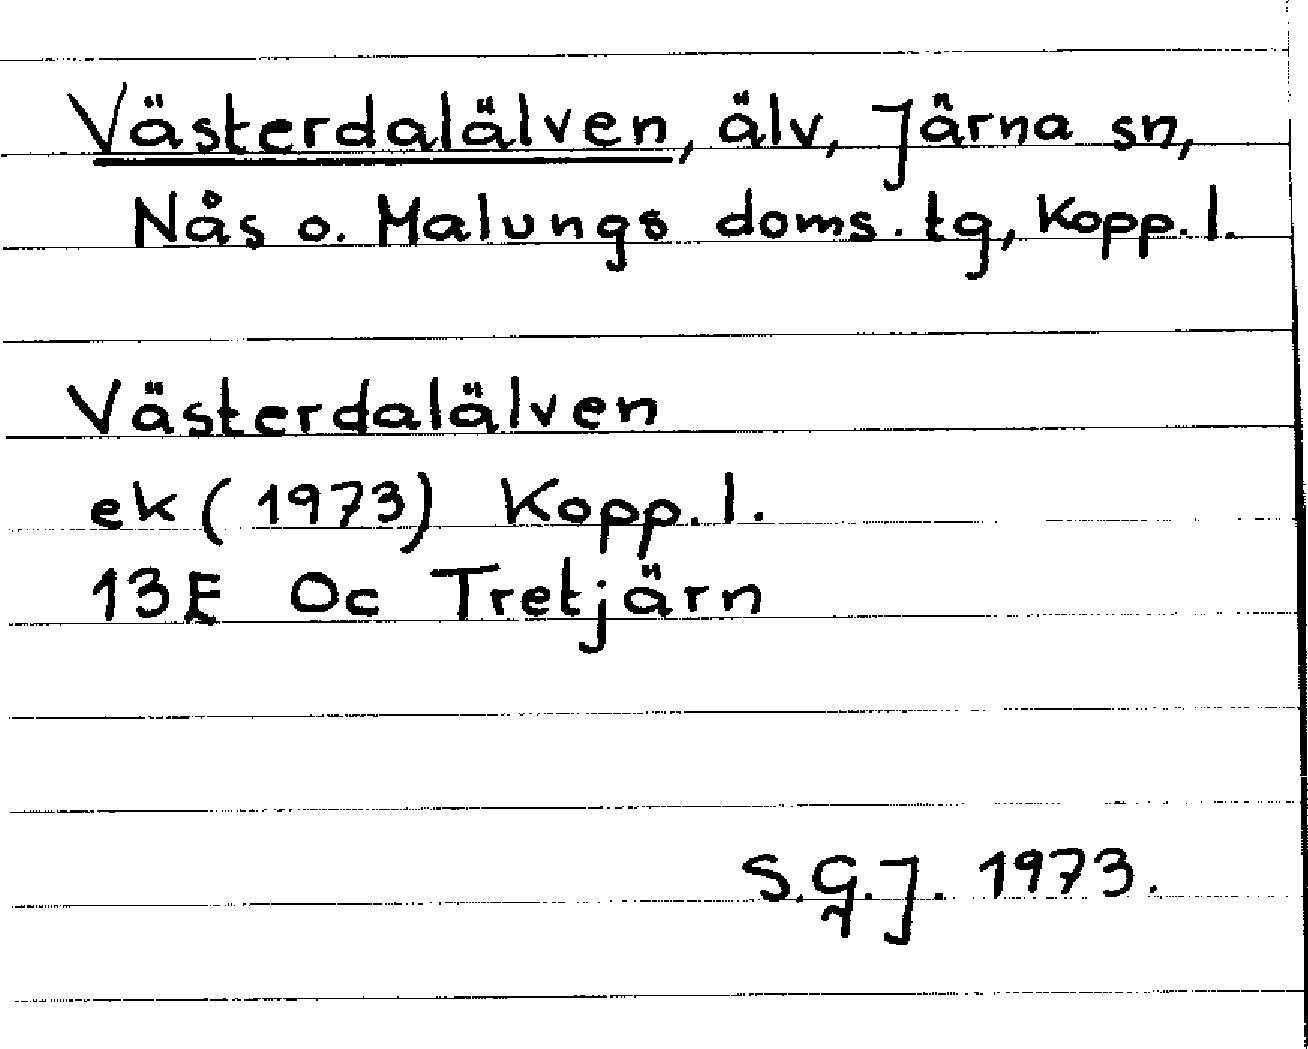 Västerdalälven, älv, Järna sn,
Nås o. Malungs doms. tg, Kopp. l.
Västerdalälven
ek (1973) Kopp. l.
13E Oc Tretjärn
S.G.J. 1973.